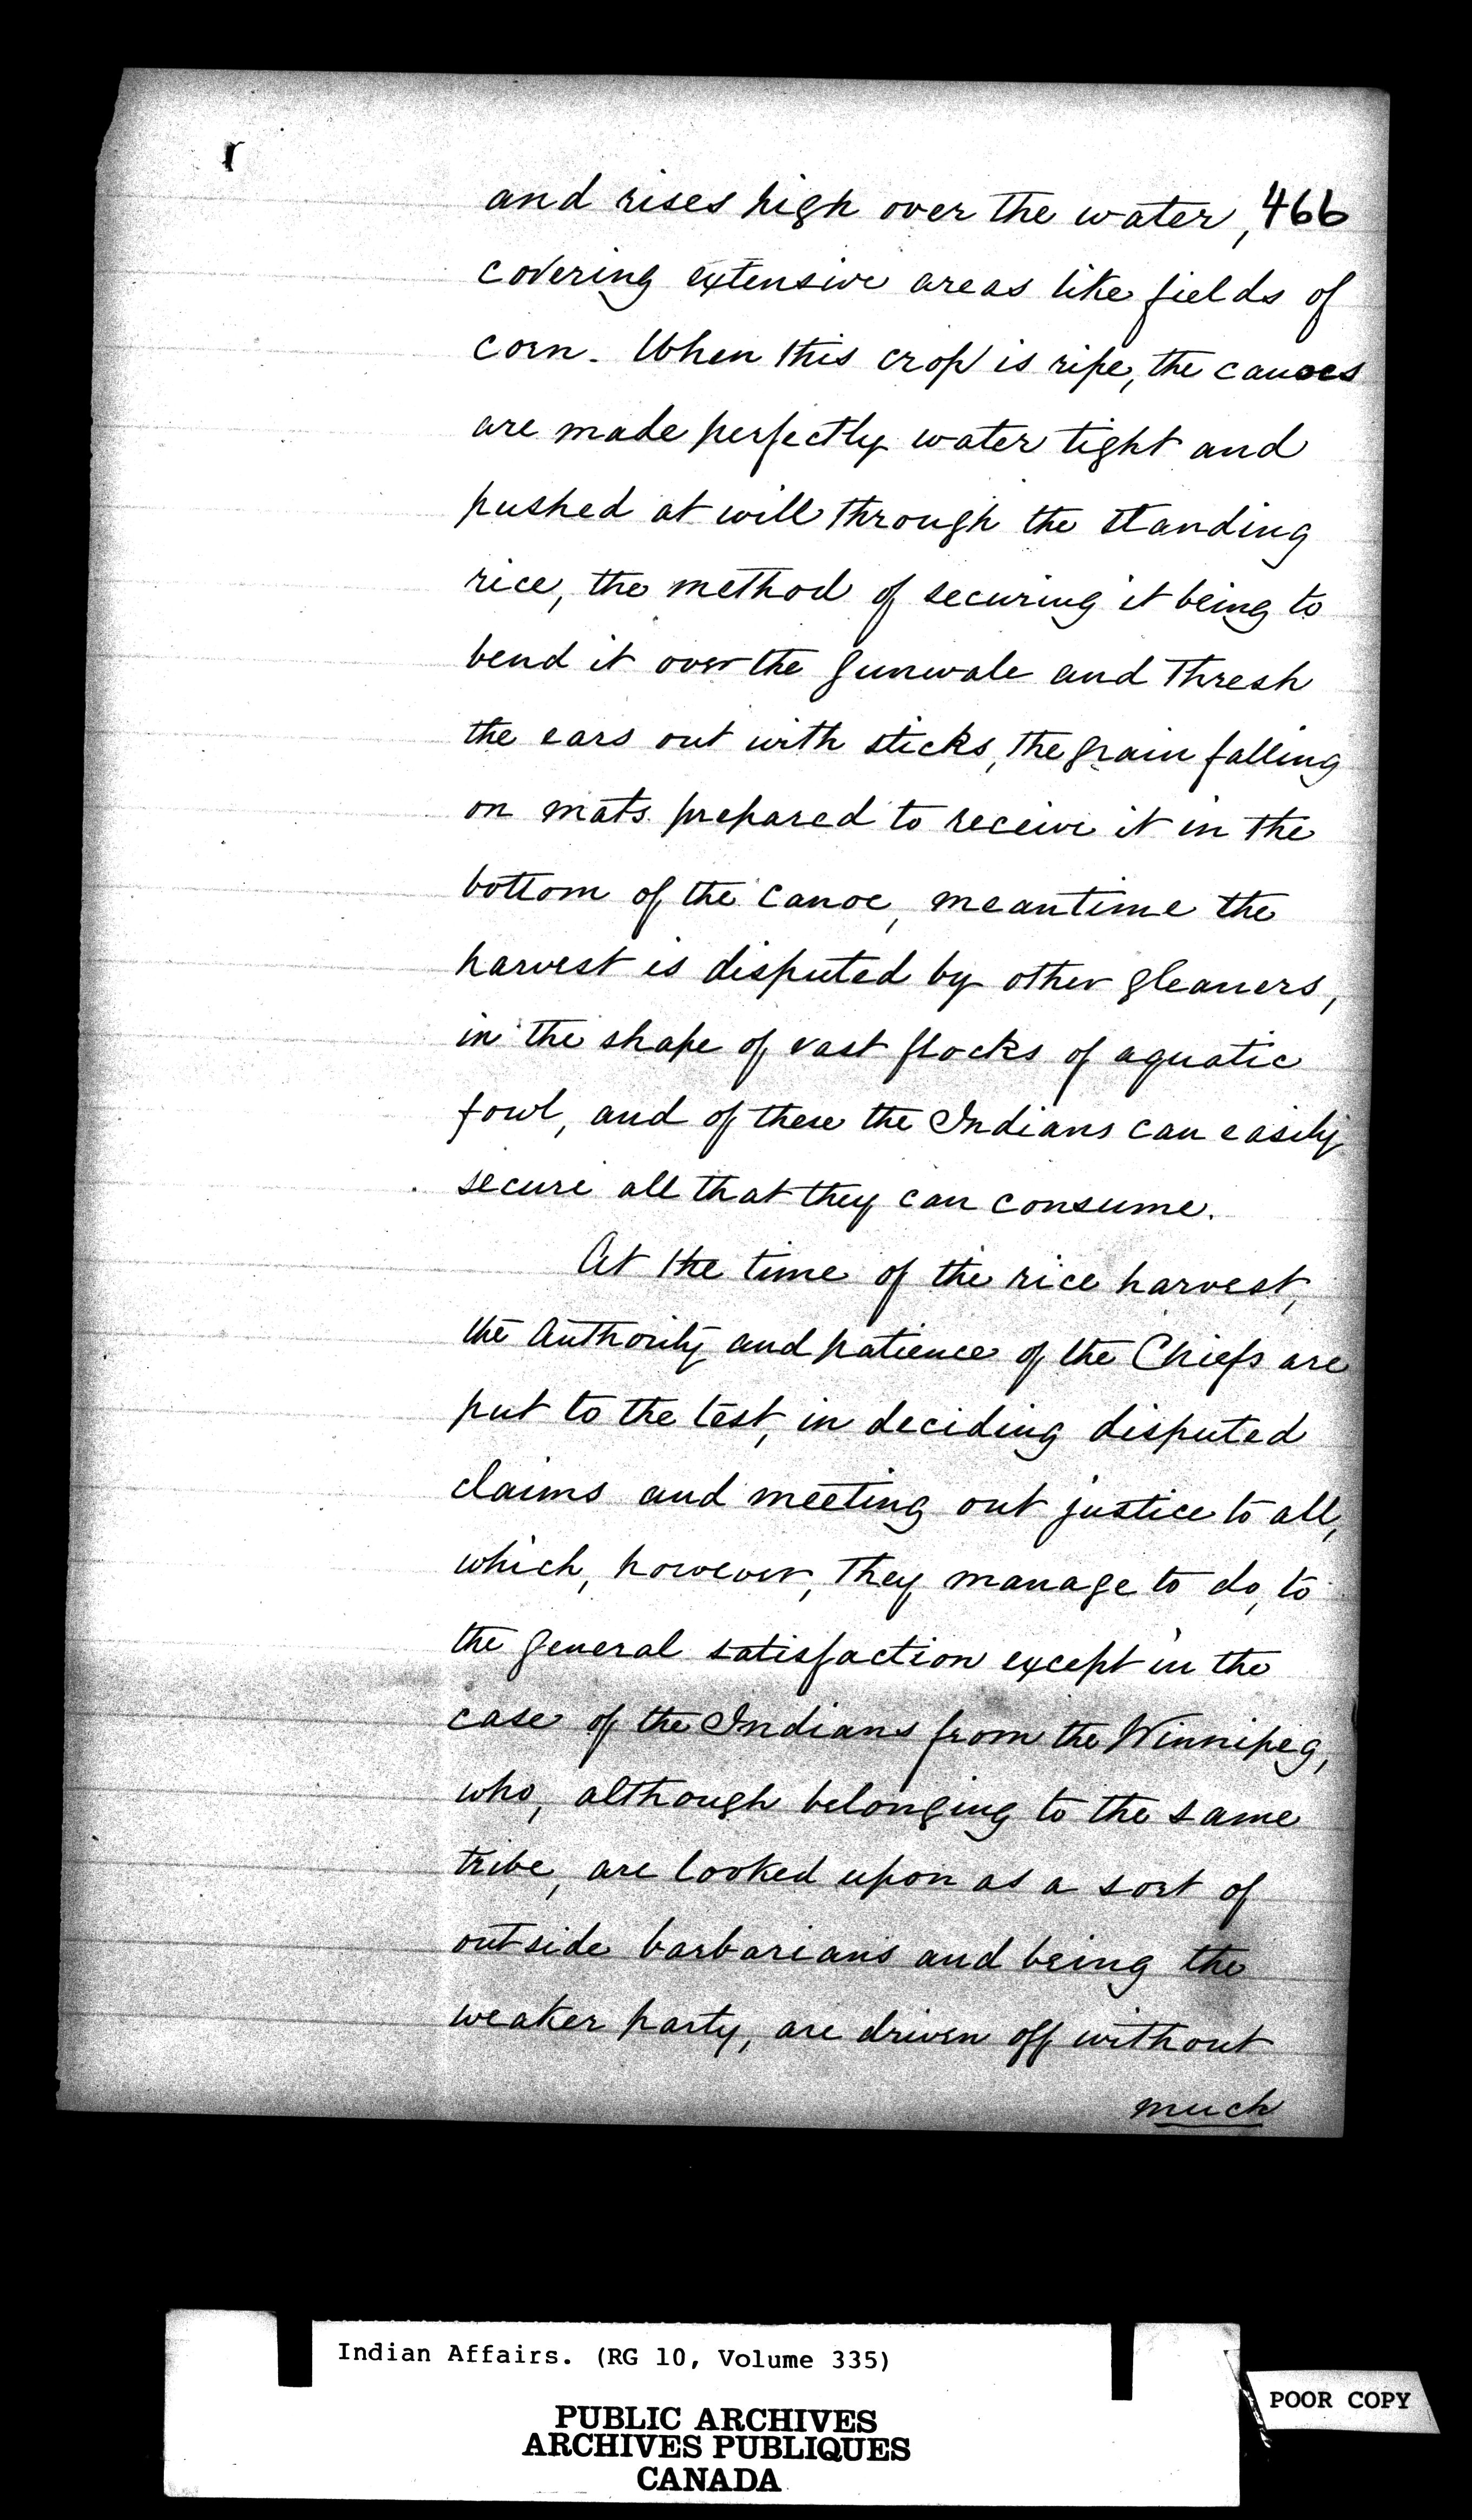 and rises high over the water, 466
covering extensive areas like fields of
corn. When this crop is ripe, the canoes
are made perfectly water tight and
pushed at will through the standing
rice, the method of securing it being to
bend it over the gunwale and thresh
the ears out with sticks, the grain falling
on mats prepared to receive it in the
bottom of the canoe, meantime the
harvest is disputed by other gleaners,
in the shape of vast flocks of aquatic
fowl, and of these the Indians can easily
secure all that they can consume.
At the time of the rice harvest,
the Authority and patience of the Chiefs are
put to the test, in deciding disputed
claims and meeting out justice to all,
which, however, they manage to do, to
the general satisfaction except in the
case of the Indians from the Winnipeg,
who, although belonging to the same
tribe, are looked upon as a sort of
outside barbarians and being the
weaker party, are driven off without
much
Indian Affairs. (RG 10, Volume 335)
PUBLIC ARCHIVES
ARCHIVES PUBLIQUES
CANADA
POOR COPY